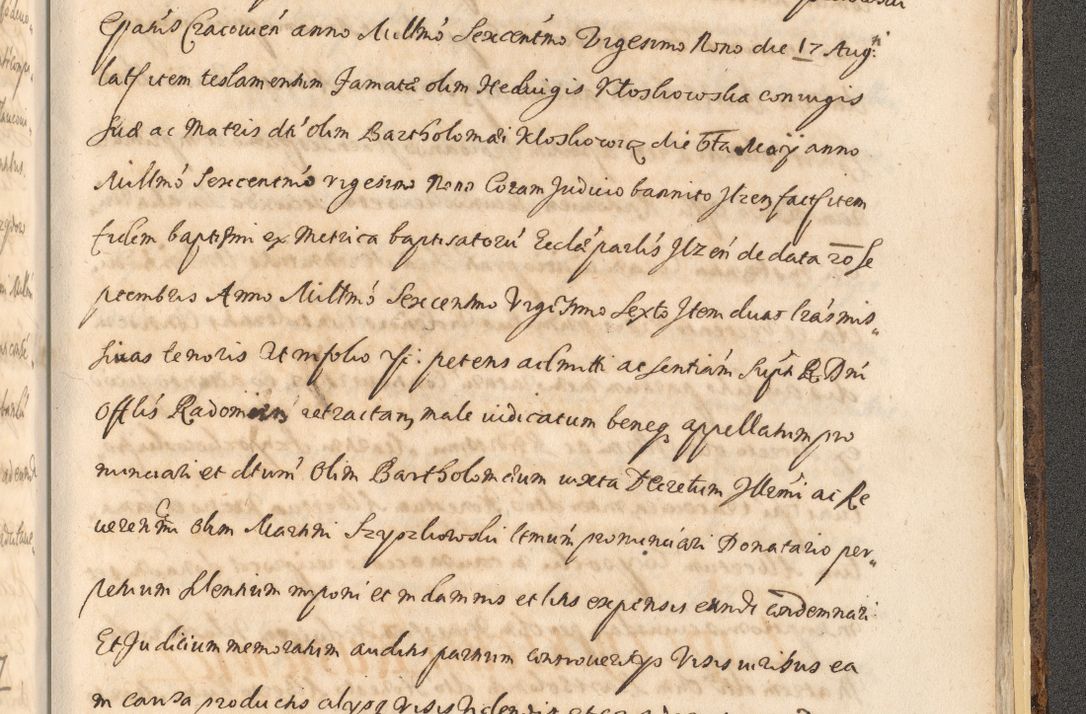 Epalis Cracovien anno Millmo Sexcentmo Vigesimo Nono die 17 Aug:ti
latf item testamentum Famatae olim Hedvigis Kłoskowska coniugis
suae ac Matris dti olim Bartholomaei Kłoskowicz die 6ta Maij anno
Millmo Sexcentmo vigesimo Nono Coram Judicio bannito Jlzen factf item
fidem baptismi ex Metrica baptisatorū Ecclae parlis Jlzeń de data 20 Se
ptembris Anno Millmo Sexcentmo Vigesimo Sexto Jtem duas lras mis„
sivas tenoris ut in folio petens admitti ac sentiam supt R Dni
Offlis Radomien retractam, male iudicatum beneq appellatum pro
nunciari et dtum olim Bartholomaeum iuxta Decretum Jllrmi ac Re
verendmi olim Martini Szyszkowski ltmum pronunciari Donatario per„
petuum silentium imponi et in damnis et litis expensis eundē condemnari
Et Judicium memoratum auditis partium controversijs visis iuribus ea
in causa productis alijsq visis videndis et